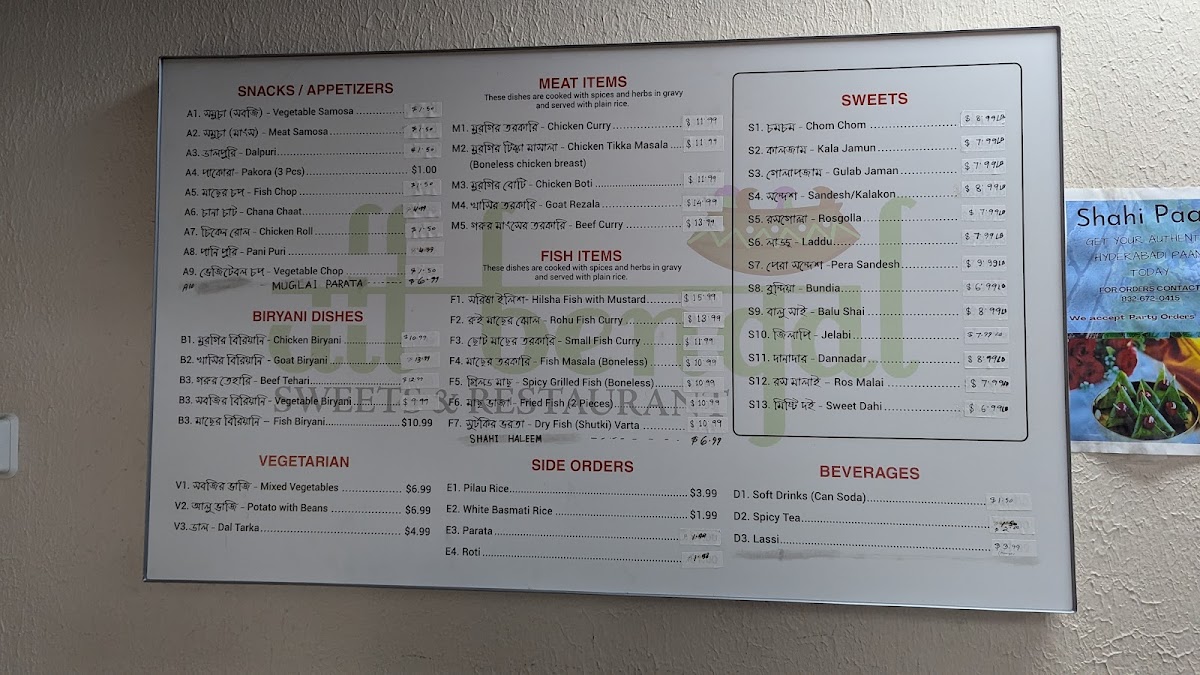 SNACKS / APPETIZERS
A1. সমুচা (সবজি) - Vegetable Samosa $1.50
A2. সমুচা (মাংস) - Meat Samosa $1.50
A3. ডালপুরি - Dalpuri $1.50
A4. পাকোরা - Pakora (3 Pcs) $1.00
A5. মাছের চপ - Fish Chop $1.50
A6. চানা চাট - Chana Chaat
A7. চিকেন রোল - Chicken Roll $1.50
A8. পানি পুরি - Pani Puri
A9. ভেজিটেবল চপ - Vegetable Chop $1.50
MUGLAI PARATA $6.99
BIRYANI DISHES
B1. মুরগির বিরিয়ানি - Chicken Biryani $10.99
B2. খাসির বিরিয়ানি - Goat Biryani $13.99
B3. গরুর তেহারি - Beef Tehari $12.99
B3. সবজির বিরিয়ানি - Vegetable Biryani
B3. মাছের বিরিয়ানি - Fish Biryani $10.99
VEGETARIAN
V1. সবজির ভাজি - Mixed Vegetables $6.99
V2. আলু ভাজি - Potato with Beans $6.99
V3. ডাল - Dal Tarka $4.99
MEAT ITEMS
These dishes are cooked with spices and herbs in gravy
and served with plain rice.
M1. মুরগির তরকারি - Chicken Curry $11.99
M2. মুরগির টিক্কা মাসালা - Chicken Tikka Masala $11.99
(Boneless chicken breast)
M3. মুরগির বোটি - Chicken Boti $11.99
M4. খাসির তরকারি - Goat Rezala $14.99
M5. গরুর মাংসের তরকারি - Beef Curry $13.99
FISH ITEMS
These dishes are cooked with spices and herbs in gravy
and served with plain rice.
F1. সরিষা ইলিশ- Hilsha Fish with Mustard $15.99
F2. রুই মাছের ঝোল - Rohu Fish Curry $13.99
F3. ছোট মাছের তরকারি - Small Fish Curry $11.99
F4. মাছের তরকারি - Fish Masala (Boneless) $10.99
F5. গ্রিলড মাছ - Spicy Grilled Fish (Boneless) $10.99
F6. মাছ ভাজা - Fried Fish (2 Pieces) $10.99
F7. সুটকির ভরতা - Dry Fish (Shutki) Varta $10.99
SHAHI HALEEM $6.99
SIDE ORDERS
E1. Pilau Rice $3.99
E2. White Basmati Rice $1.99
E3. Parata
E4. Roti
SWEETS
S1. চমচম - Chom Chom $8.99LB
S2. কালজাম - Kala Jamun $7.99LB
S3. গোলাপজাম - Gulab Jaman $7.99LB
S4. সন্দেশ - Sandesh/Kalakon $8.99LB
S5. রসগোল্লা - Rosgolla $7.99LB
S6. লাড্ডু - Laddu $7.99LB
S7. পেরা সন্দেশ -Pera Sandesh $9.99LB
S8. বুন্দিয়া - Bundia $6.99LB
S9. বালু সাই - Balu Shai $8.99LB
S10. জিলাপি - Jelabi $7.99LB
S11. দানাদার - Dannadar $8.99LB
S12. রস মালাই - Ros Malai $7.99LB
S13. মিষ্টি দই - Sweet Dahi $6.99LB
BEVERAGES
D1. Soft Drinks (Can Soda) $1.50
D2. Spicy Tea
D3. Lassi $3.99
SWEETS & RESTAURANT
Shahi Paa
GET YOUR AUTHENT
HYDERABADI PAAN
TODAY
FOR ORDERS CONTACT
832-672-0415
We accept Party Orders